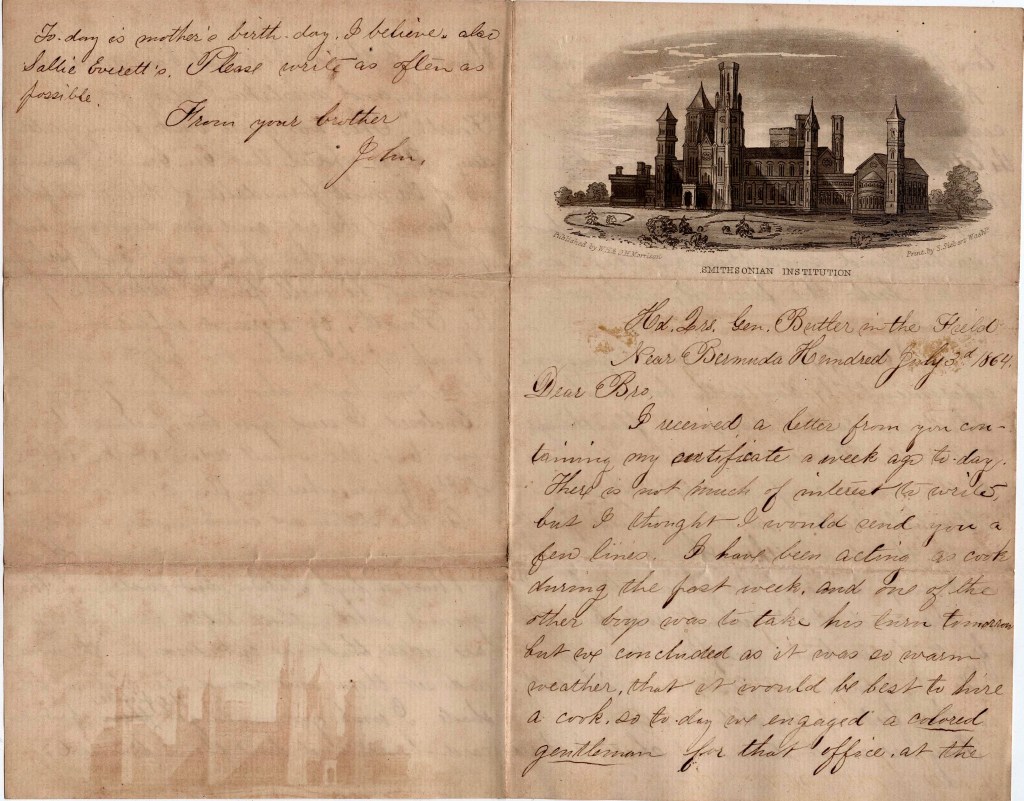 To-day is mother's birth-day, I believe, also
Sallie Everett's. Please write as often as
possible.
From your brother
John.
Published by
Print. by S. Siebert Wash.
SMITHSONIAN INSTITUTION
Hd. Qrs. Gen. Butler in the Field
Near Bermuda Hundred July 3d 1864.
Dear Bro,
I received a letter from you con-
taining my certificate a week ago to-day.
There is not much of interest to write,
but I thought I would send you a
few lines. I have been acting as cook
during the past week, and one of the
other boys was to take his turn tomorrow
but we concluded as it was so warm
weather, that it would be best to hire
a cook, so to-day we engaged a colored
gentleman for that office, at the